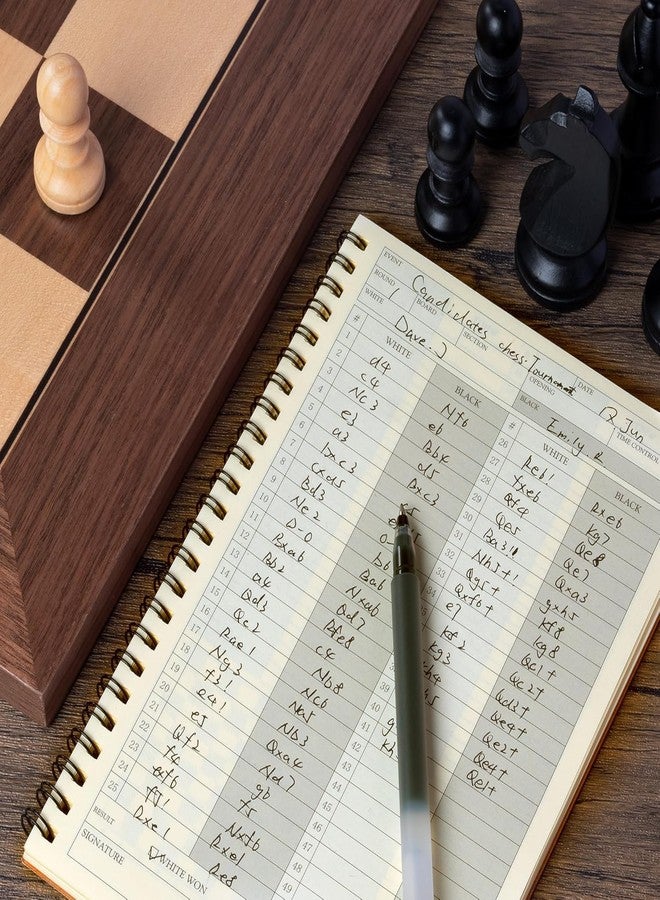 EVENT Candidates chess Tournament DATE
ROUND 1 BOARD SECTION OPENING 2 Jun
WHITE Dave.J BLACK Emily.R TIME CONTROL
# WHITE BLACK
1 d4 Nf6
2 c4 e6
3 Nc3 Bb4
4 e3 d5
5 a3 Bxc3
6 bxc3
7 cxd5
8 Bd3
9 Ne2 b6
10 0-0 Ba6
11 Bxa6 Nxa6
12 Bb2 Qd7
13 a4 Rfe8
14 Qd3 c4
15 Qc2 Nb8
16 Rae1 Nc6
17 Ng3 Na5
18 f3! Nb3
19 e4! Qxa4
20 e5 Nd7
21 Qf2 g6
22 f4 f5
23 exf6 Nxf6
24 f5! Rxe1
25 Rxe1 Re8
# WHITE BLACK
26 Re6! Rxe6
27 fxe6 Kg7
28 Qf4 Qe8
29 Qe5 Qe7
30 Ba3!! Qxa3
31 Nh5+! gxh5
32 Qg5+! Kf8
33 Qxf6+ Kg8
34 e7 Qc1+
Kf2 Qc2+
Kg3 Qd3+
Qe4+
Qe2+
39 Qe4+
40 Qe1+
41
42
43
44
45
46
47
48
49
RESULT WHITE WON
SIGNATURE